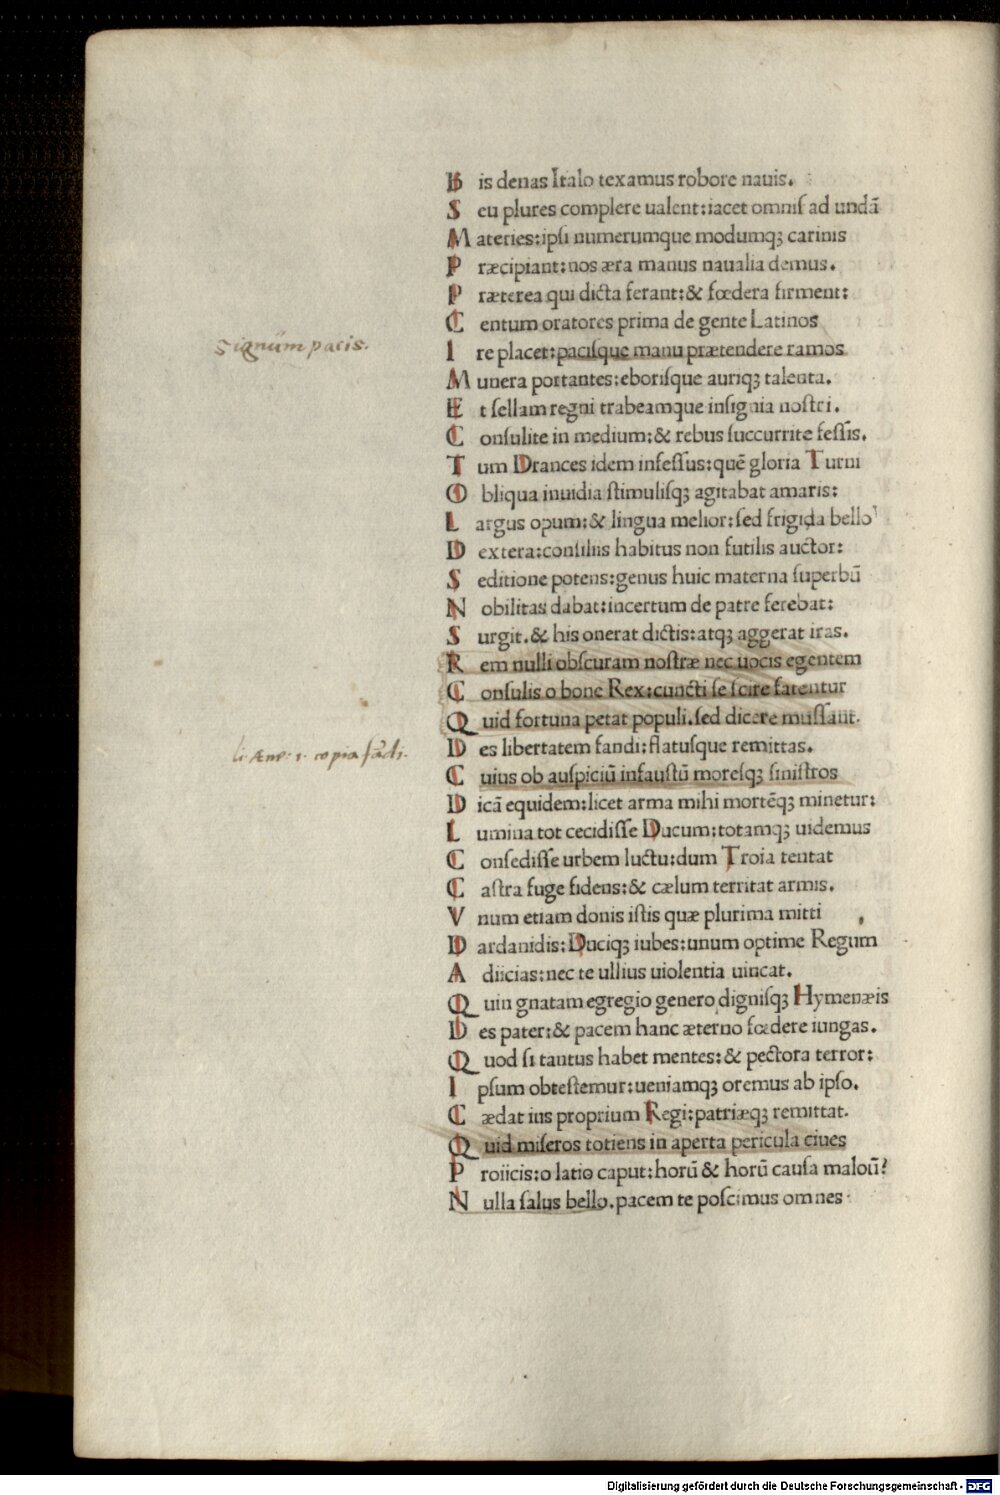 Bis denas Italo texamus robore nauis.
Seu plures complere ualent:iacet omniſ ad undā
Materies:ipſi numerumque modumqꝫ carinis
Præcipiant:nos æra manus naualia demus.
Præterea qui dicta ferant:& fœdera firment:
Centum oratores prima de gente Latinos
Signum pacis.
Ire placet:paciſque manu prætendere ramos
Munera portantes:eboriſque auriqꝫ talenta.
Et ſellam regni trabeamque inſignia noſtri.
Conſulite in medium:& rebus ſuccurrite feſſis.
Tum Drances idem infeſſus:quē gloria Turni
Obliqua inuidia ſtimuliſqꝫ agitabat amaris:
Largus opum:& lingua melior:ſed frigida bello
Dextera:conſiliis habitus non futilis auctor:
Seditione potens:genus huic materna ſuperbū
Nobilitas dabat:incertum de patre ferebat:
Surgit.& his onerat dictis:atqꝫ aggerat iras.
Rem nulli obſcuram noſtræ nec uocis egentem
Conſulis o bone Rex:cuncti ſe ſcire fatentur
Quid fortuna petat populi.ſed dicere muſſant.
Des libertatem fandi:flatuſque remittas.
li. Æne. 1. copia fādi.
Cuius ob auſpiciū infauſtū moreſqꝫ ſiniſtros
Dicā equidem:licet arma mihi mortēqꝫ minetur:
Lumina tot cecidiſſe Ducum:totamqꝫ uidemus
Conſediſſe urbem luctu:dum Troia tentat
Caſtra fuge fidens:& cælum territat armis.
Vnum etiam donis iſtis quæ plurima mitti
Dardanidis:Duciqꝫ iubes:unum optime Regum
Adiicias:nec te ullius uiolentia uincat.
Quin gnatam egregio genero digniſqꝫ Hymenæis
Des pater:& pacem hanc æterno fœdere iungas.
Quod ſi tantus habet mentes:& pectora terror:
Ipſum obteſtemur:ueniamqꝫ oremus ab ipſo.
Cædat ius proprium Regi:patriæqꝫ remittat.
Quid miſeros totiens in aperta pericula ciues
Proiicis:o latio caput:horū & horū cauſa maloū?
Nulla ſalus bello.pacem te poſcimus omnes
Digitalisierung gefördert durch die Deutsche Forschungsgemeinschaft - DFG